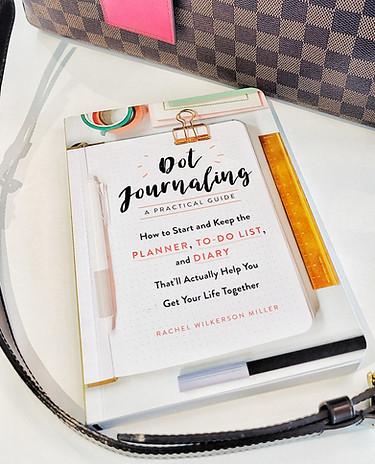 Dot
Journaling
A PRACTICAL GUIDE
How to Start and Keep the
PLANNER, TO-DO LIST,
and DIARY
That'll Actually Help You
Get Your Life Together
RACHEL WILKERSON MILLER